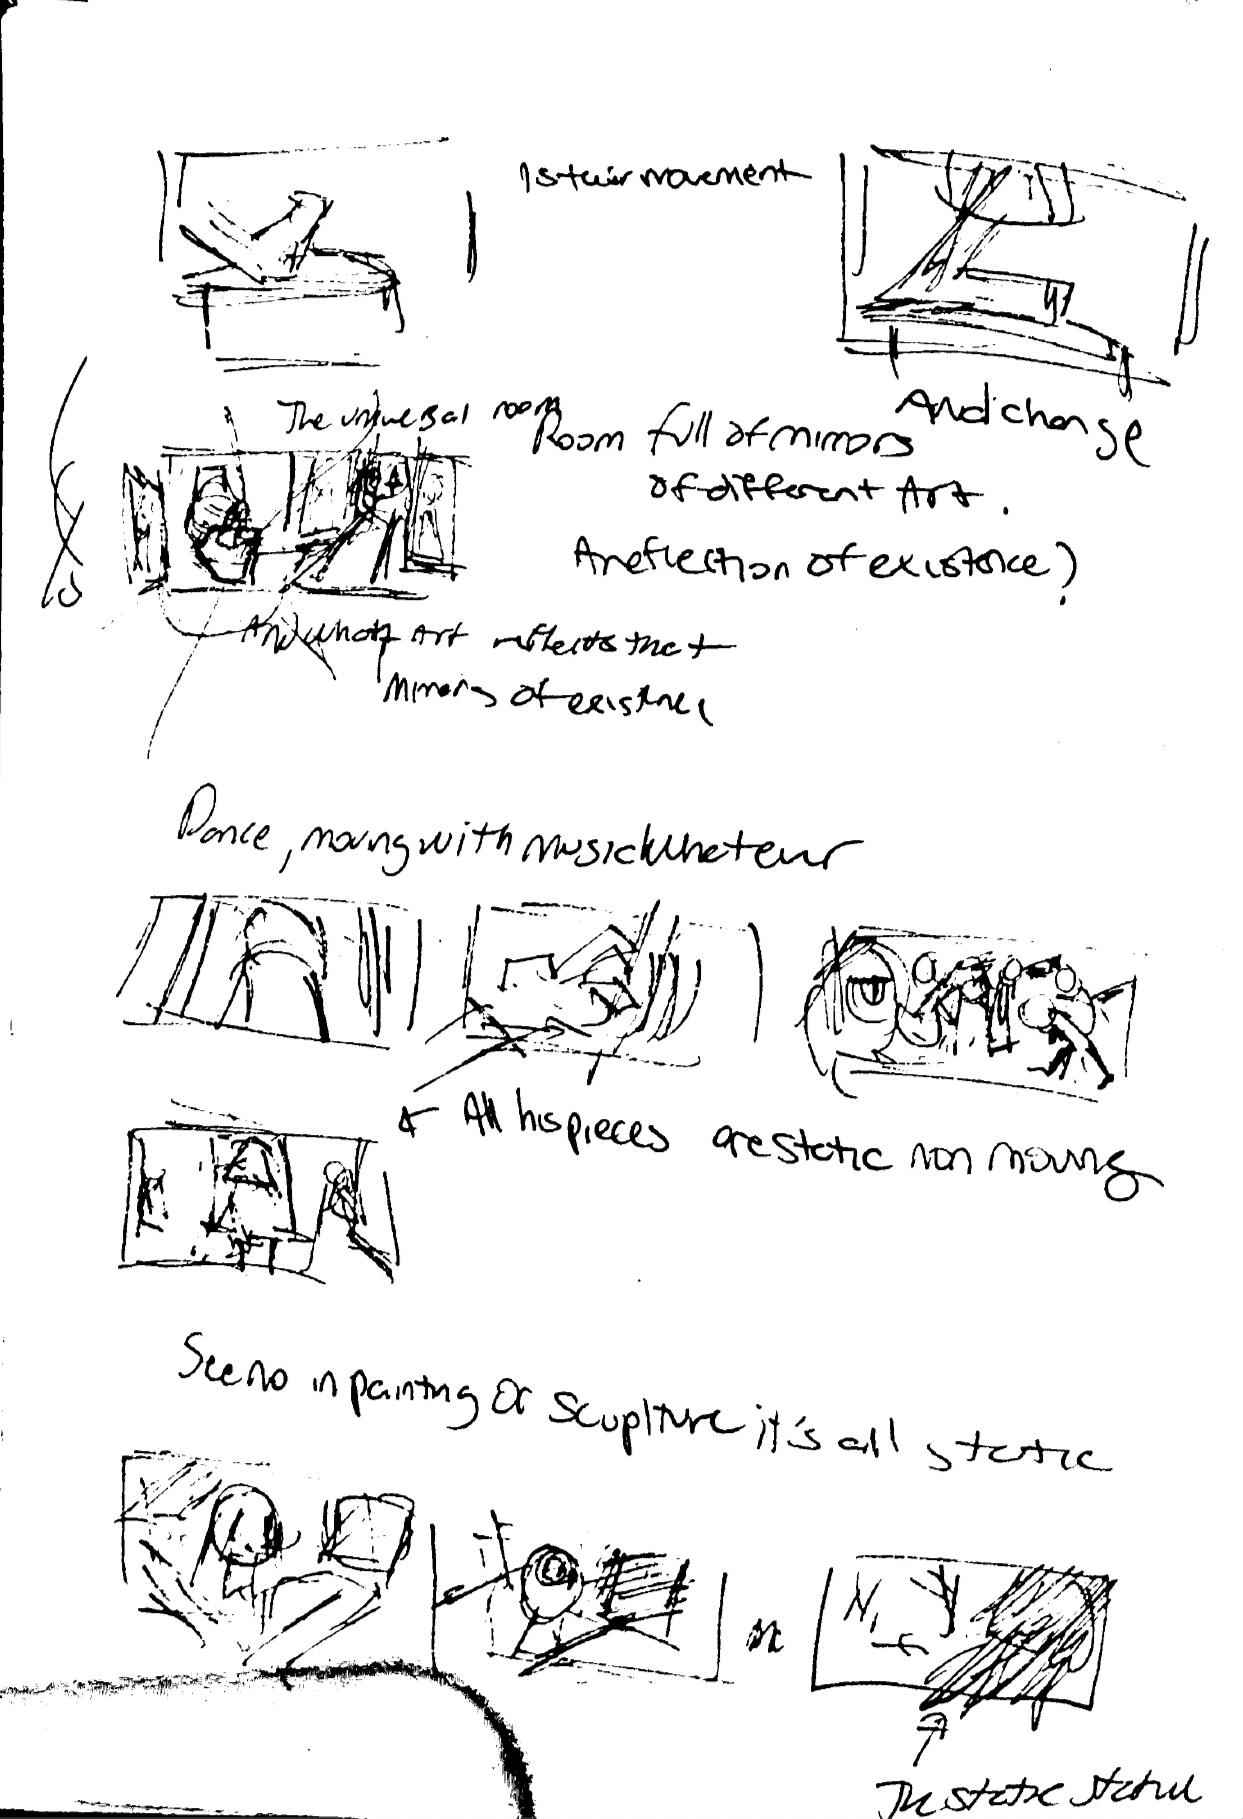 movement
And change
The universal room
Room full of mirrors
of different Art.
A reflection of existence?
And what Art reflects that
Mirrors of existence
Dance, moving with music
All his pieces are static non moving
in painting or scuplture it's all static
or
The static